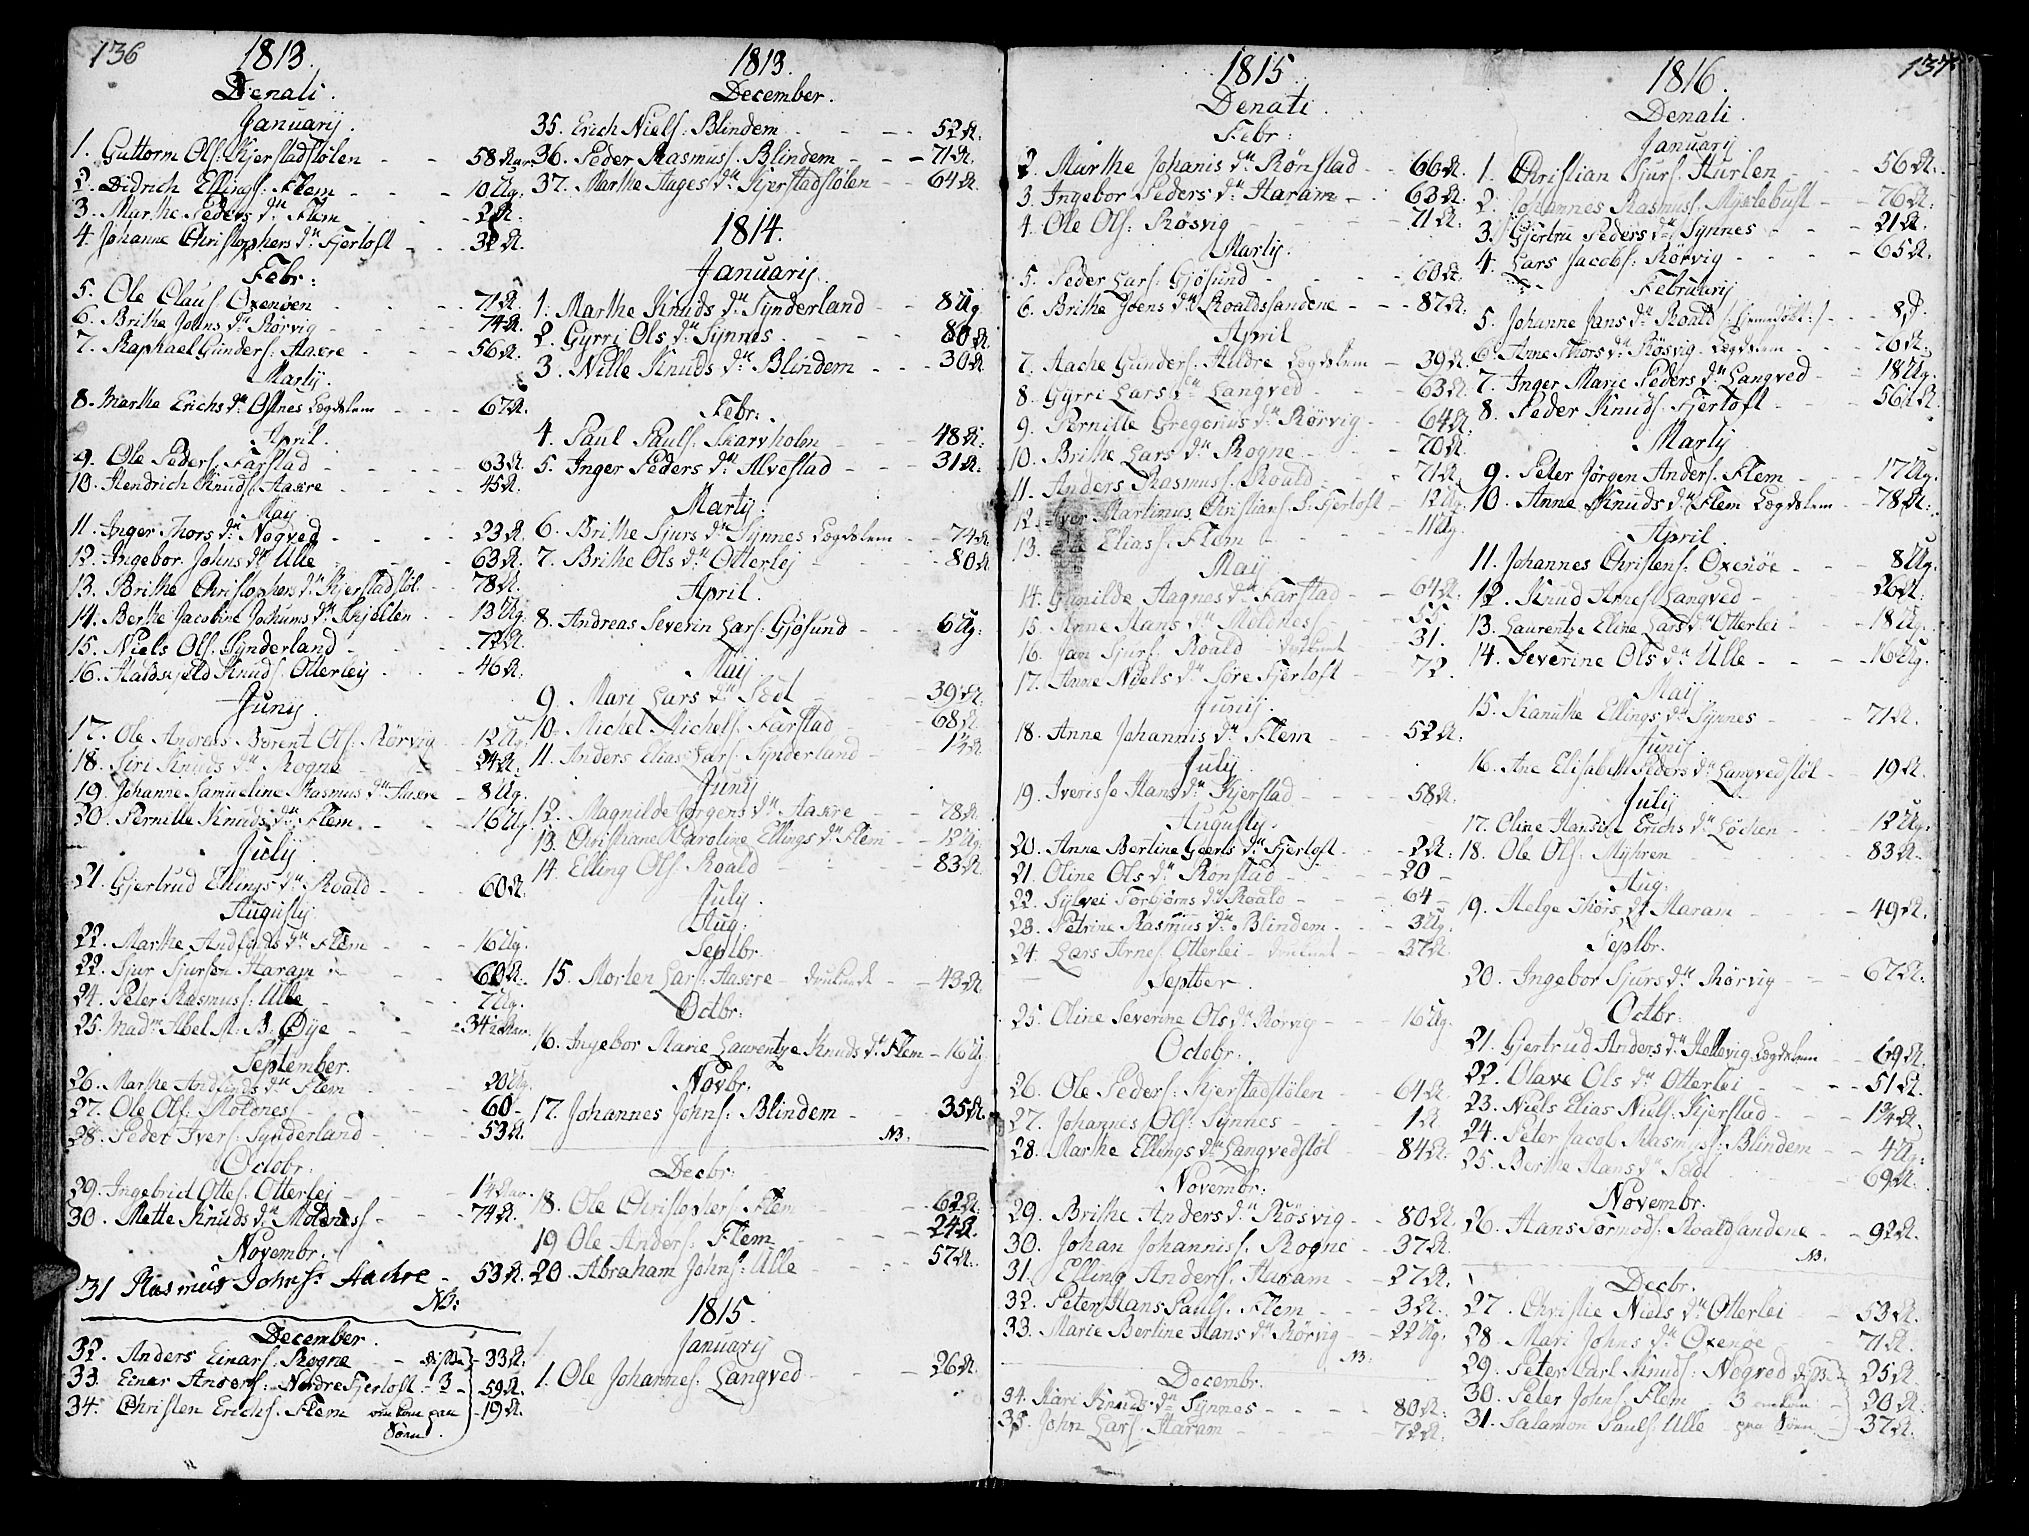 136
1813.
Denati.
Januarij.
1. Guttorm Ols: Kjerstadstølen - - 58 Aar
2. Didrich Ellings: Flem - - - 10 Ug.
3. Marthe Peders dr Flem - - - 2 A.
4. Johanne Christophers dr Fjertoft - - 32 A.
Febr:
5. Ole Claus: Oxenøen - - 71 A.
6. Brithe Johns dr Rørvig - - 74 A.
7. Raphael Gunders: Aakre - - - 56 A.
Martij.
8. Marthe Erichs dr Østnes Lægdslem - - - 67 A.
April.
9. Ole Peders: Farstad - - - 63 A.
10. Hendrich Knuds: Aakre - - - 45 A.
May.
11. Inger Thors dr Nogved - - - 23 A.
12. Ingebor Johns dr Ulle - - - 63 A.
13. Brithe Christophers dr Kjerstadstøl - 78 A.
14. Berthe Jacobine Jochums dr Skjelten - 13 Ug.
15. Niels Ols: Synderland - - - 72 A.
16. Knuds: Otterlej - - 46 A.
Junij
17. Ole Andreas Berent Ols: Rørvig - 12 Ug.
18. Siri Knuds dr Rogne - - - 24 A.
19. Johanne Samueline Rasmus dr Aakre - 8 Ug.
20. Pernille Knuds dr Flem - - 16 Ug.
Julij.
21. Gjertrud Ellings dr Roald - - - 60 A.
Augustij.
22. Marthe Andfinds dr Flem - - - 16 Ug.
22. Sjur Sjursøn Haram - - - 60 A.
24. Peter Rasmus: Ulle - - - 7 Ug.
25. Madm Abel M. B. Øÿe - - - 34
September.
26. Marthe Andfinds dr Flem - - - 20 Ug.
27. Ole Ols: Moldnes - - - 60 -
28. Peder Ivers: Synderland - - - 53 A.
Octobr:
29. Ingebrict Ottes: Otterlej - - - 1¼ Aar.
30. Mette Knuds dr Moldnes - - - 74 A.
Novembr.
31 Rasmus Johns: Aakre - 53 A.
NB:
December.
32. Anders Einars: Rogne - - disse 33 A.
33. Einar Anders: Nordre Fjertoft - 3 - 59 A.
34. Christen Erichs: Flem omkom paa 19 A.
Søen.
1813.
December.
35. Erich Niels: Blindem - - - 52 A.
36. Peder Rasmus: Blindem - - - 71 A.
37. Marthe Aages dr Kjerstadstølen - - 64 A.
1814.
Januarij.
1. Marthe Knuds dr Synderland - - 8 Ug.
2. Gyrri Ols dr Synnes - - - 80 A.
3. Nille Knuds dr Blindem - - - 30 A.
Febr:
4. Paul Pauls: Skarvholm - - - 48 A.
5. Inger Peders dr Alvestad - - - 31 A.
Martij.
6. Brithe Sjurs dr Synnes Lægdslem - - 74 A.
7. Brithe Ols dr Otterlej - - - 80 A.
April.
8. Andreas Severin Lars: Gjøsund - - - 6 Ug.
Maij
9. Mari Lars dr Sæt - - - 39 A.
10. Michel Michels: Farstad - - - 68 A.
11. Anders Elias Lars: Synderland - - 1¼ A.
Junij
12. Magnilde Jørgens dr Aakre - - 78 A.
13. Christhane Caroline Ellings dr Flem - - 12 Ug.
14. Elling Ols: Roald - - - 83 A.
July.
Aug.
Septbr.
15. Morten Lars: Aakre - druknede - - 43 A.
Octbr:
16. Ingebor Marie Laurentze Knuds dr Flem - 16 Ug.
Novbr.
17. Johannes Johns: Blindem - - 35 A.
NB.
Decbr.
18. Ole Christophers: Flem - - - 62 A.
19 Ole Anders: Flem - - - 24 A.
20. Abraham Johns: Ulle - - - 57 A.
1815.
Januarij
1. Ole Johannes: Langved - - - 26 A.
1815.
Denati.
Febr:
2. Marthe Johanis dr Rønstad - - 66 A.
3. Ingebor Peders dr Haram - - 63 A.
4. Ole Ols: Røsvig - - - 71 A.
Martij.
5. Peder Lars: Gjøsund - - - 60 A.
6. Brithe Joens dr Roaldssandene - - - 87 A.
April
7. Aache Gunders: Aakre Lægdslem - 39 A.
8. Gyrri Lars dr Langved - - - 63 A.
9. Pernille Gregorius dr Rørvig - - 64 A.
10. Brithe Lars dr Rogne - - - 70 A.
11. Anders Rasmus: Roald - - - 71 A.
12. Iver Martinus Christians: S: Fjertoft - 12 Ug.
13. Elias: Flem - - - 11 Ug.
May
14. Gunilde Aagnes dr Farstad - - 64 A.
15. Anne Hans dr Moldnes - - 55.
16. Jan Sjurs: Roald - druknet - 31.
17. Anne Niels dr Søre Fjertoft - - 72.
Junij.
18. Anne Johannis dr Flem - - - 52 A.
July
19. Iverisse Hans dr Kjerstad - - - 58 A.
Augustij.
20. Anne Bertine Geerts dr Fjertoft - - - 2 A.
21. Oline Ols dr Rønstad - - - 20 -
22. Sylvei Torbjørns dr Roald - - - 64 -
23. Petrine Rasmus dr Blindem - - - 3 Ug.
24. Lars Arnes: Otterlei - druknet - - 37 A.
Septber.
25. Oline Severine Ols dr Rørvig - - - 16 Ug.
Octobr.
26. Ole Peders: Kjerstadstølen - - - 64 A.
27. Johannes Ols: Synnes - - - 1 A.
28. Marthe Ellings dr Langvedstøl - - 84 A.
Novembr:
29. Brithe Anders dr Røsvig - - 80 A.
30. Johan Johannis: Rogne - - 37 A.
31. Elling Anders: Haram - - 27 A.
32. Peter Hans Pauls: Flem - - - 3 A.
33. Marie Bertine Hans dr Rørvig - - 22 Ug.
NB.
Decembr.
34. Kari Knuds dr Synnes - - - 80 A.
35. John Lars: Haram - - - 72 A.
137
1816.
Denati.
Januarij.
1. Christian Sjurs: Hurlen - - - 56 A.
2. Johannes Rasmus: Myklebust - - 76 A.
3. Gjertru Peders dr Synnes - - - 21 A.
4. Lars Jacobs: Rørvig - - - 65 A.
Februarij
5. Johanne Jans dr Roald /: hiemedøbt :/ - - - 8 d.
6. Anne Thors dr Røsvig Lægdslem - - - 70 A.
7. Inger Marie Peders dr Langved - - 18 Ug.
8. Peder Knuds: Fjertoft - - - 56½ A.
Martij
9. Peter Jørgen Anders: Flem - - - 17 Ug.
10. Anne Knuds dr Flem Lægdslem - - 78 A.
April
11. Johannes Christens: Oxenøe - - - 8 Ug.
12. Knud Arnes: Langved - - - 26 A.
13. Laurentze Eline Lars dr Otterlei - - 18 Ug.
14. Severine Ols dr Ulle - - - 16 Ug.
Maij
15. Kanuthe Ellings dr Synnes - - - 71 A.
Junij
16. Ane Elisabeth Peders dr Langvedstøl - - 19 A.
July
17. Oline Hansine Erichs dr Løchen - - - 12 Ug.
18. Ole Ols: Myhren - - - 83 A.
Aug.
19. Helge Thors dr Haram - - - 49 A.
Septbr.
20. Ingebor Sjurs dr Rørvig - - 67 A.
Octbr.
21. Gjertrud Anders dr Hellevig Lægdslem - - 69 A.
22. Olave Ols dr Otterlei - - - 51 A.
23. Niels Elias Niels: Kjerstad - - - 1¾ A.
24. Peter Jacob Rasmus: Blindem - - 4 Ug.
25. Berthe Hans dr Sæt - - - 69 A.
Novembr.
26. Hans Tormods: Roaldsandene - - 92 A.
NB.
Decbr.
27. Christie Niels dr Otterlei - - - 53 A.
28. Mari Johns dr Oxenøe - - - 71 A.
29. Peter Carl Knuds: Nogved disse 25 A.
30. Peter Johns: Flem - 3 omkom - 20 A.
31. Salamon Pauls: Ulle - paa Søen - 37 A.